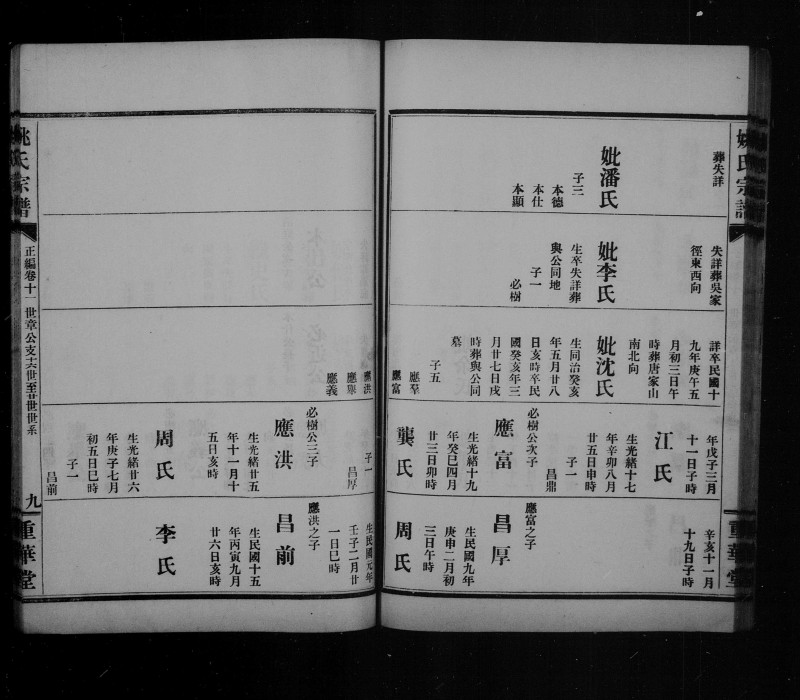 姚氏宗譜
重華堂
葬失詳
妣潘氏
子三
本德
本仕
本顯
失詳葬吳家
徑東西向
妣李氏
生卒失詳葬
與公同地
子一
必樹
詳卒民國十
九年庚午五
月初三日午
時葬唐家山
南北向
妣沈氏
生同治癸亥
年五月廿八
日亥時卒民
國癸亥年三
月廿七日戌
時葬與公同
墓
子五
應羣
應富
年戊子三月
十一日子時
江氏
生光緒十七
年辛卯八月
廿五日申時
子一
昌鼎
必樹公次子
應富
生光緒十九
年癸巳四月
廿三日卯時
龔氏
辛亥十一月
十九日子時
應富之子
昌厚
生民國九年
庚申二月初
三日午時
周氏
應洪
應舉
應義
子一
昌厚
必樹公三子
應洪
生光緒廿五
年十一月十
五日亥時
周氏
生光緒廿六
年庚子七月
初五日巳時
子一
昌前
生民國元年
壬子二月廿
一日巳時
應洪之子
昌前
生民國十五
年丙寅九月
廿六日亥時
李氏
姚氏宗譜
正編卷十一
世章公支十六世至廿世世系
九
重華堂